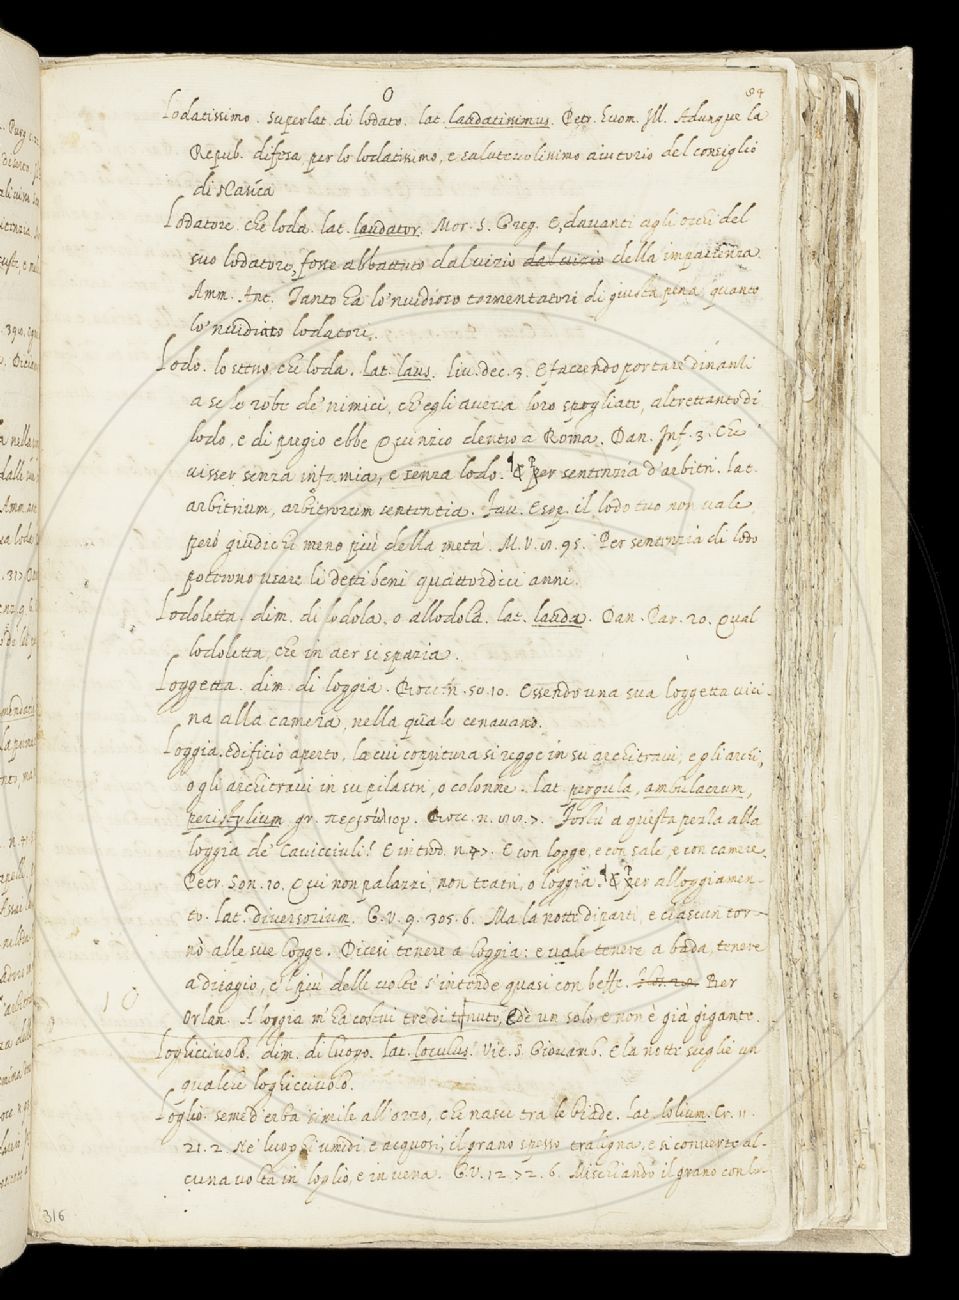 O
84
Lodatissimo. superlat. di lodato. lat. laudatissimus. Petr. Huom. Ill. Adunque la
Repub. difesa per lo lodatissimo, e saluteuolissimo aiutorio del consiglio
di
Lodatore. che loda. lat. laudator. Mor. S. Greg. E, dauanti agli occhi del
suo lodatore, fosse abbattuto dal uizio dal uizio della impatienza
Amm. Ant. Tanto ha lo'nuidioso tormentatori di giusta pena quanto
lo'nuidiato lodatori.
Lodo. lo stesso, che loda. Lat. laus. Liu. dec. 3. E faccendo portare dinanzi
a se le robe de' nimici, ch'egli aueua loro spogliate, altrettanto di
lodo, e di pregio ebbe Quinzio dentro a Roma. Dan. Inf. 3. Che
uisser senza infamia, e senza lodo. ¶ & Per sentenzia d'arbitri. lat.
arbitrium, arbitrorum sententia. Fau. Esop. il lodo tuo non uale,
però giudichi meno più della metà. M. V. 95. Per sentenzia di lodo
potessono usare li detti beni quattordici anni.
Lodoletta. dim. di lodola, o allodola. lat. lauda. Dan. Par. 20. Qual
lodoletta, che in aer si spazia.
Loggetta. dim. di loggia. Bocc. n. 50. 10. Essendo una sua loggetta uici-
na alla camera, nella quale cenauano.
Loggia. Edificio aperto, la cui copritura si regge in su architraui, e gli archi,
o gli architraui in su pilastri, o colonne. lat. pergula, ambulacrum,
peristylium gr. Bocc. n. 7. a questa per la alla
loggia de' Cauicciuli! E introd. n. 47. E con logge, e con sale, e con camere.
Petr. Son. 10. Qui non palazzi, non teatri, o loggia. ¶ & Per alloggiamen-
to. lat. diuersorium. G. V. 9. 305. 6. Ma la notte diparti, e ciascun tor-
nò alle sue logge. Dicesi tenere a loggia: e uale tenere a bada, tenere
a disagio, e 'l più delle uolte s'intende quasi con beffe. Ber
Orlan. A loggia m'ha costui tre dì tenuto, Ed è un solo, e non è già gigante.
Logliciuolo. dim. di luogo. lat. loculus. Vit. S. Giouanb. E la notte sceglie un
qualche logliciuolo.
Loglio. seme d'erba simile all'orzo, che nasce tra le biade. lat. lolium. Cr. 11.
21. 2. Ne' luoghi umidi, e acquosi, il grano spesso traligna, e si conuerte al-
cuna uolta in loglio, e in uena. G. V. 12. 72. 6. Mischiando il grano con lo-
10
316